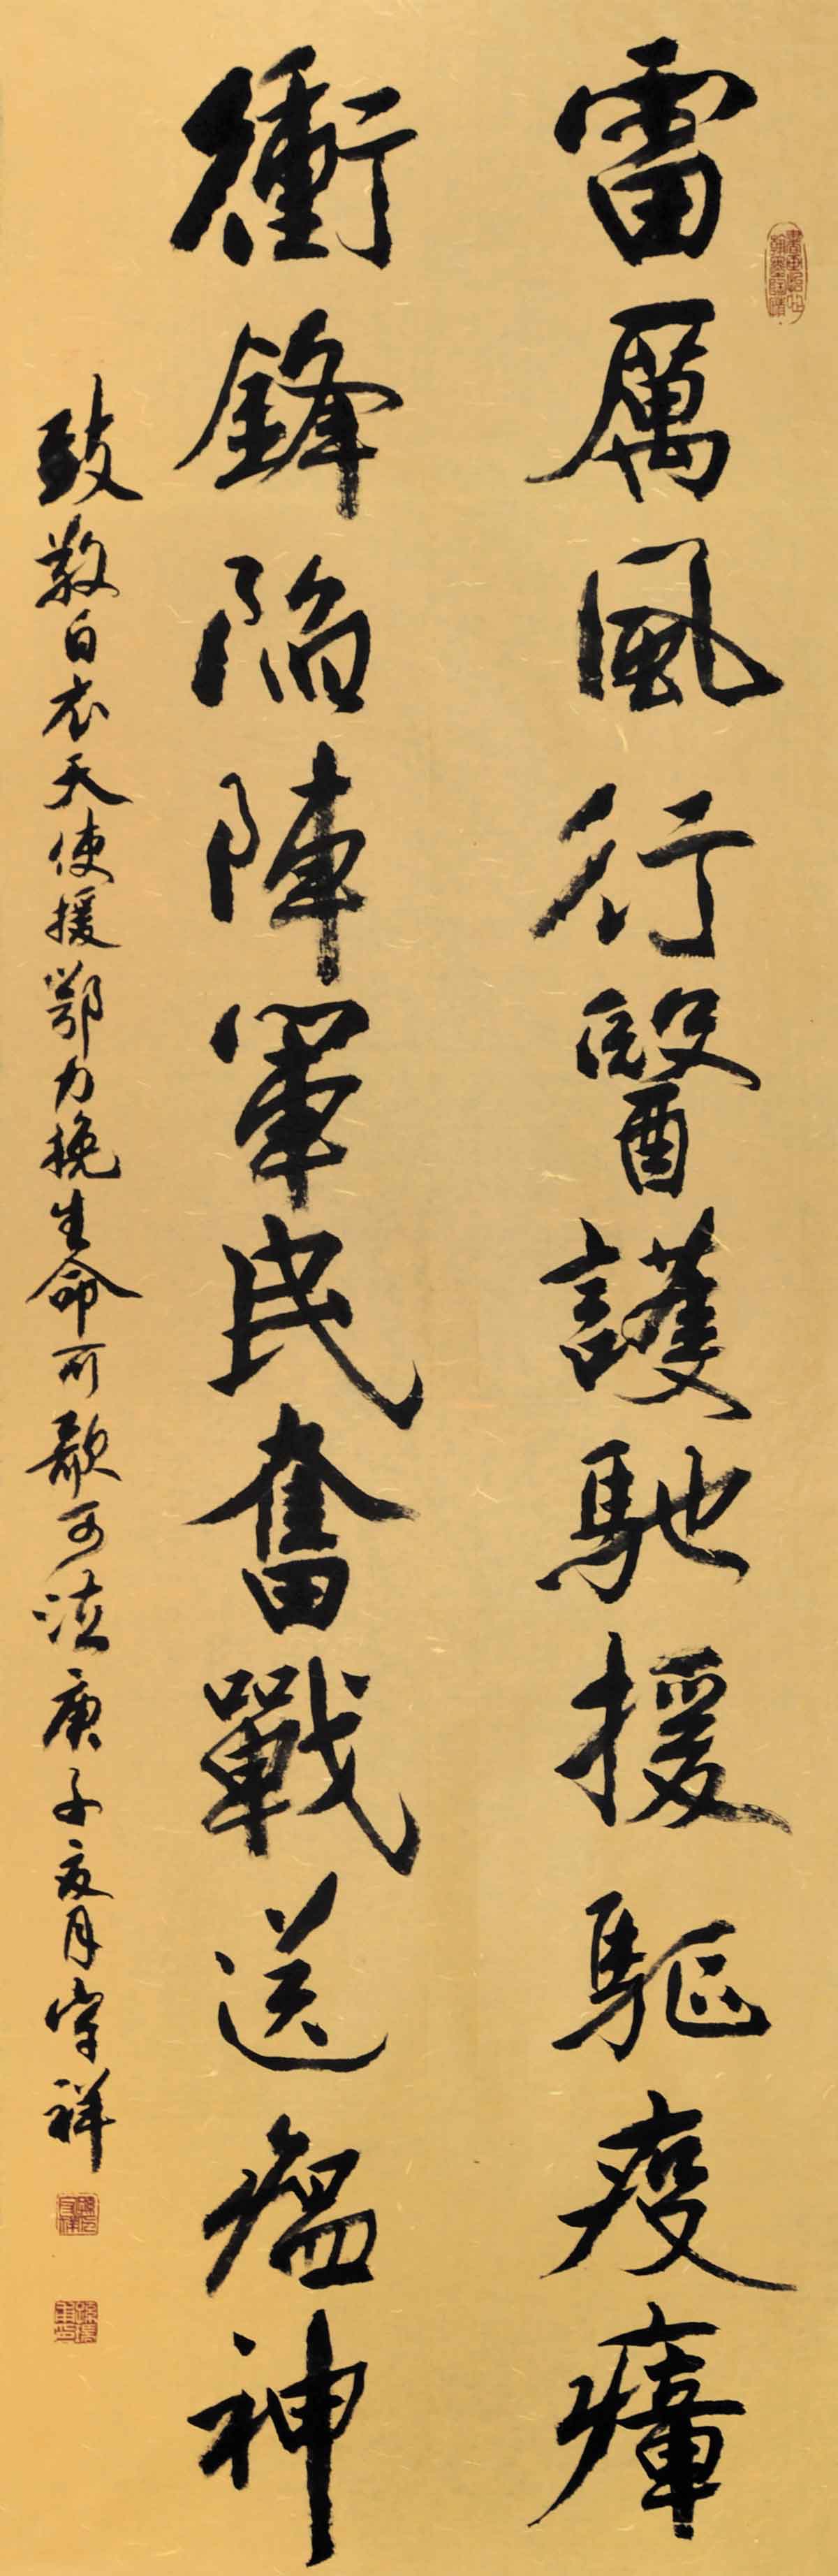 雷厲風行醫護馳援驅疫瘴
衝鋒陷陣軍民奮戰送瘟神
致敬白衣天使援鄂力挽生命可歌可泣庚子夏月祥